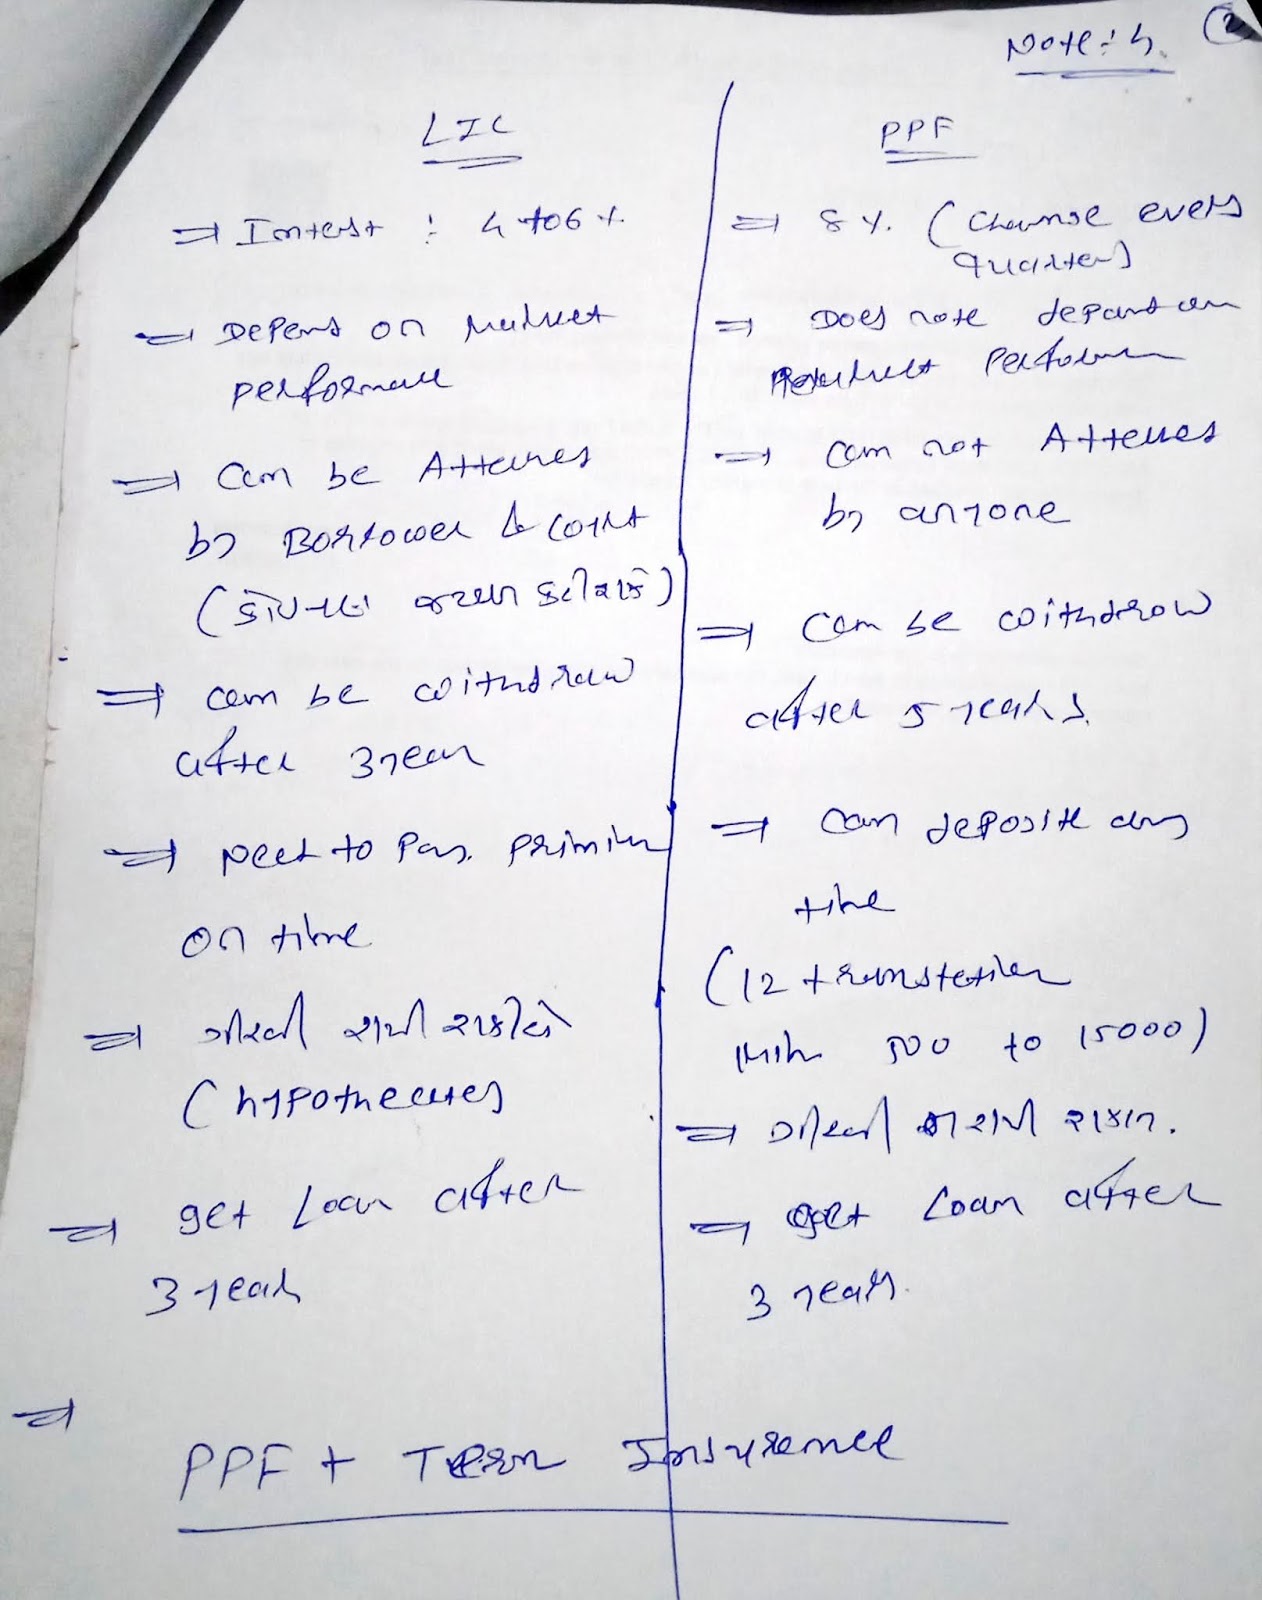 Note:- 4.
2
LIC
⇒ Intest : 4 to 6 %
⇒ Depens on Market
performance
⇒ Can be Attaches
by Borrower & Court
(
જપ્ત કરી શકે)
⇒ can be withdraw
after 3 year
⇒ Need to Pay. primium
on time
⇒ ગીરવી રાખી શકીએ
(hypothecates)
⇒ get Loan after
3 year
PPF
⇒ 8 %. (Change every
quarter)
⇒ Does note depand on
Market Perform
⇒ can not Attaches
by anyone
⇒ Can be withdrow
after 5 years.
⇒ can deposite any
time
(12 transtetion
Min 500 to 15000)
⇒ ગીરવી ન રાખી શકાય.
⇒ get Loan after
3 years.
⇒
PPF + Term Insurence